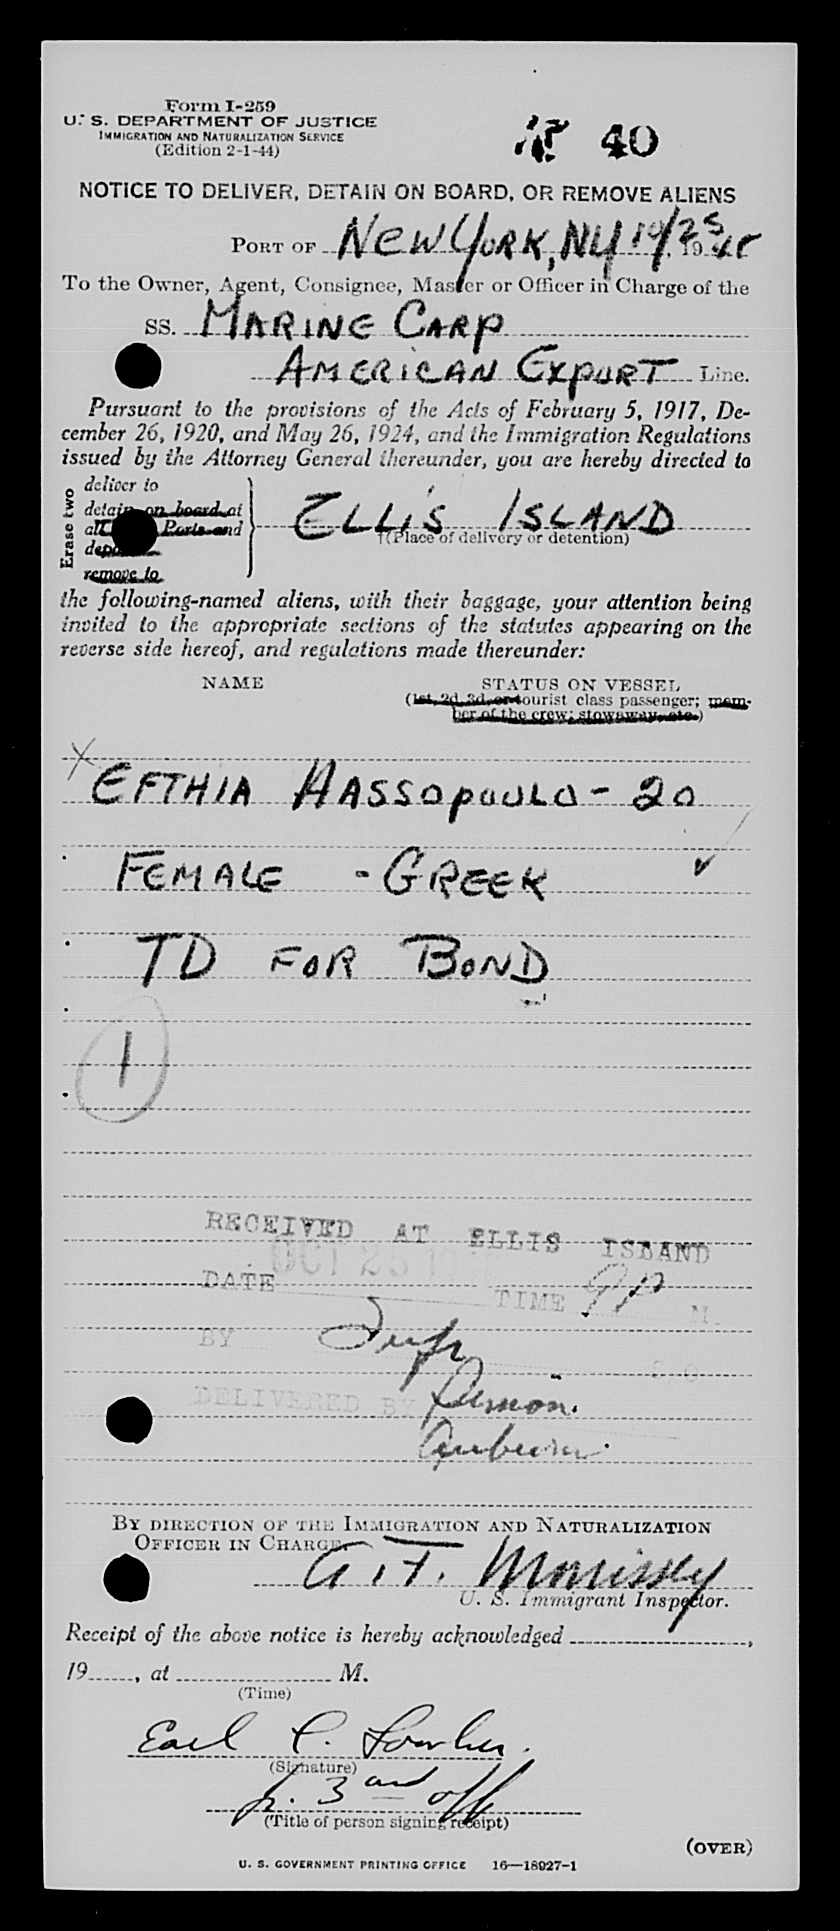 Form I-259
U. S. DEPARTMENT OF JUSTICE
IMMIGRATION AND NATURALIZATION SERVICE
(Edition 2-1-44)
40
NOTICE TO DELIVER, DETAIN ON BOARD, OR REMOVE ALIENS
PORT OF NEW YORK, NY 10/25, 19
To the Owner, Agent, Consignee, Master or Officer in Charge of the
SS. MARINE CARP
AMERICAN EXPORT Line.
Pursuant to the provisions of the Acts of February 5, 1917, De-
cember 26, 1920, and May 26, 1924, and the Immigration Regulations
issued by the Attorney General thereunder, you are hereby directed to
Erase two
deliver to
detain on board at
all Ports and
remove to
ELLIS ISLAND
†(Place of delivery or detention)
the following-named aliens, with their baggage, your attention being
invited to the appropriate sections of the statutes appearing on the
reverse side hereof, and regulations made thereunder:
NAME STATUS ON VESSEL
(1st, 2d, 3d, or tourist class passenger; mem-
ber of the crew; stowaway, etc.)
X EFTHIA HASSOPOULO - 20
FEMALE - GREEK ✓
TD FOR BOND
1
RECEIVED AT ELLIS ISLAND
OCT 25
DATE TIME 9 P M.
BY
DELIVERED BY
BY DIRECTION OF THE IMMIGRATION AND NATURALIZATION
OFFICER IN CHARGE.
A.T. Morrissey
U. S. Immigrant Inspector.
Receipt of the above notice is hereby acknowledged ,
19 , at M.
(Time)
Earl C.
(Signature)
Jr. 3rd off
(Title of person signing receipt)
(OVER)
U. S. GOVERNMENT PRINTING OFFICE 16—18927-1